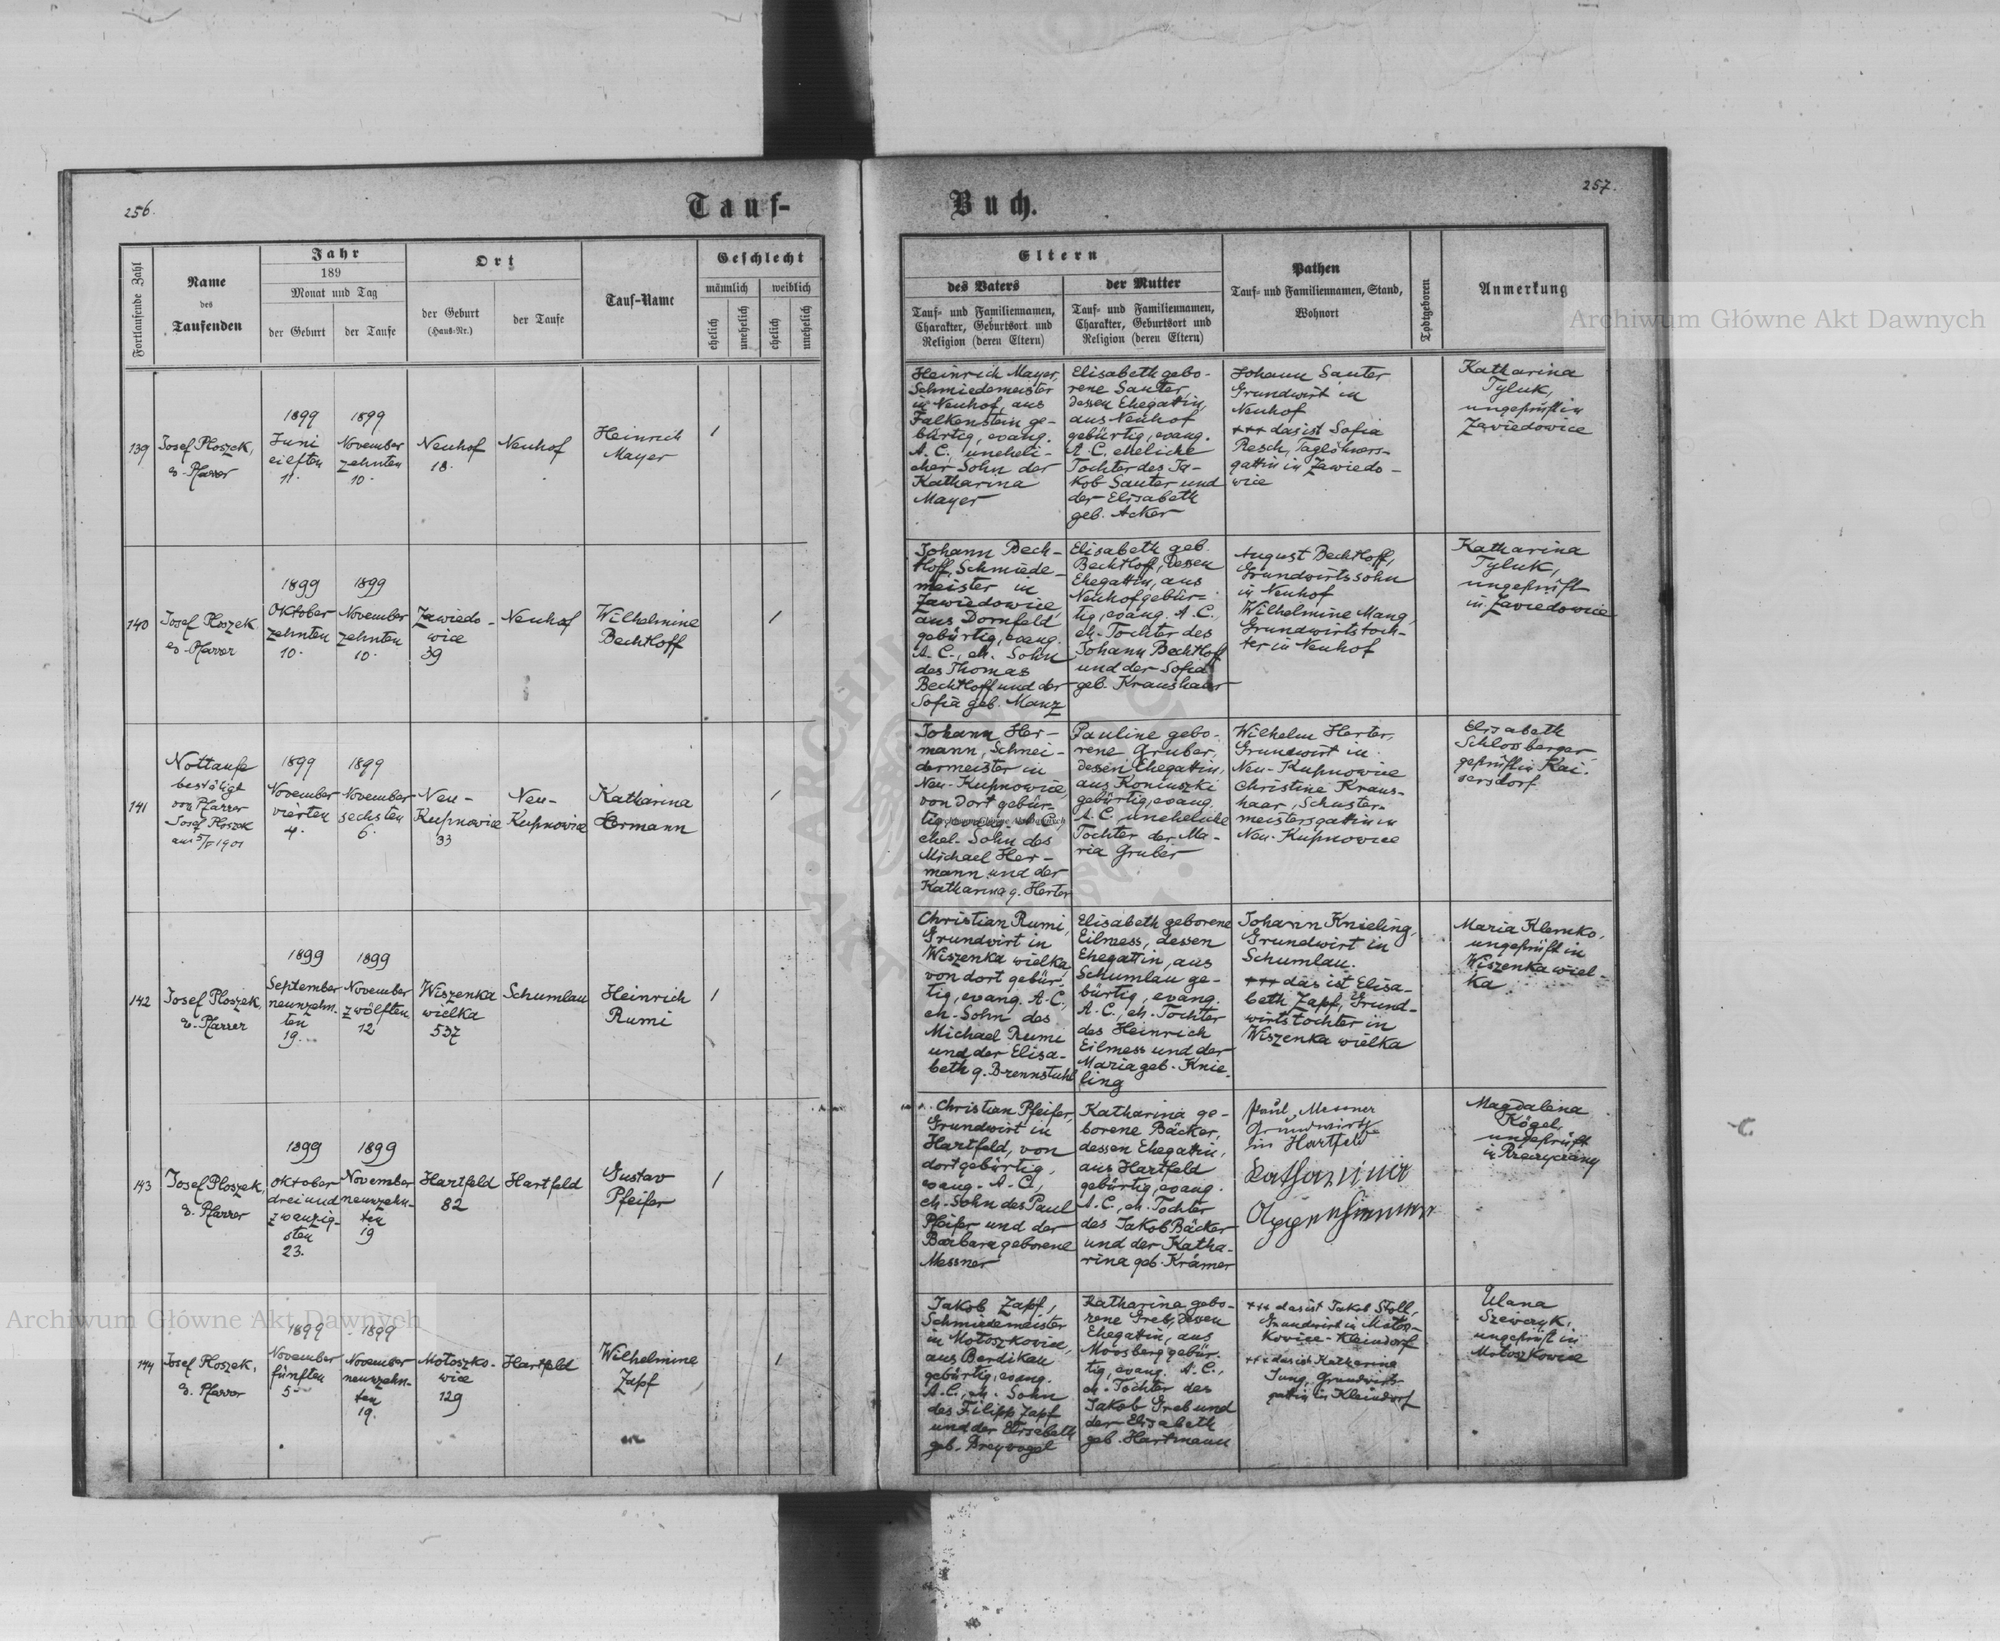 256.
Tauf-
Buch.
257.
Fortlaufende Zahl
Name
des
Taufenden
Jahr
189
Monat und Tag
der Geburt
der Taufe
Ort
der Geburt
(Haus-Nr.)
der Taufe
Tauf-Name
Geschlecht
männlich
weiblich
ehelich
unehelich
ehelich
unehelich
Eltern
des Vaters
Tauf- und Familiennamen,
Charakter, Geburtsort und
Religion (deren Eltern)
der Mutter
Tauf- und Familiennamen,
Charakter, Geburtsort und
Religion (deren Eltern)
Pathen
Tauf- und Familiennamen, Stand,
Wohnort
Todtgeboren
Anmerkung
139
Josef Ploszek,
ev. Pfarrer
1899
Juni
eilften
11.
1899
November
zehnten
10.
Neuhof
18.
Neuhof
Heinrich
Mayer
1
Heinrich Mayer,
Schmiedemeister
in Neuhof, aus
Falkenstein ge-
bürtig, evang.
A. C., uneheli-
cher Sohn der
Katharina
Mayer
Elisabeth gebo-
rene Sauter,
dessen Ehegattin,
aus Neuhof
gebürtig, evang.
A. C., eheliche
Tochter des Ja-
kob Sauter und
der Elisabeth
geb. Acker
Johann Sauter
Grundwirt in
Neuhof
+++ das ist Sofia
Resch, Taglöhners-
gattin in Zawiedo-
wice
Katharina
Tyluk,
ungeprüft in
Zawiedowice
140
Josef Ploszek
ev. Pfarrer
1899
Oktober
zehnten
10.
1899
November
zehnten
10.
Zawiedo-
wice
39
Neuhof
Wilhelmine
Bechtloff
1
Johann Bech-
tloff, Schmiede-
meister in
Zawiedowice,
aus Dornfeld
gebürtig, evang.
A. C., eh. Sohn
des Thomas
Bechtloff und der
Sofia geb. Manz
Elisabeth geb.
Bechtloff, dessen
Ehegattin, aus
Neuhof gebür-
tig, evang. A. C.,
eh. Tochter des
Johann Bechtloff
und der Sofia
geb. Kraushaar
August Bechtloff,
Grundwirtssohn
in Neuhof
Wilhelmine Mang,
Grundwirtstoch-
ter in Neuhof
Katharina
Tyluk,
ungeprüft
in Zawiedowice
141
Nottaufe
bestätigt
von Pfarrer
Josef Ploszek
am 5/5 1901
1899
November
vierten
4.
1899
November
sechsten
6.
Neu-
Kupnowice
33
Neu-
Kupnowice
Katharina
Hermann
1
Johann Her-
mann, Schnei-
dermeister in
Neu-Kupnowice,
von dort gebür-
tig, evang. A. C.,
ehel. Sohn des
Michael Her-
mann und der
Katharina g. Herter
Pauline gebo-
rene Gruber,
dessen Ehegattin,
aus Koniuszki
gebürtig, evang.
A. C., uneheliche
Tochter der Ma-
ria Gruber
Wilhelm Herter,
Grundwirt in
Neu-Kupnowice
Christine Kraus-
haar, Schuster-
meistersgattin in
Neu-Kupnowice
Elisabeth
Schlossberger
geprüft in Kai-
sersdorf
142
Josef Ploszek,
ev. Pfarrer
1899
September
neunzehn-
ten
19.
1899
November
zwölften
12
Wiszenka
wielka
537
Schumlau
Heinrich
Rumi
1
Christian Rumi,
Grundwirt in
Wiszenka wielka,
von dort gebür-
tig, evang. A. C.,
eh. Sohn des
Michael Rumi
und der Elisa-
beth g. Brennstuhl
Elisabeth geborene
Eilmess, dessen
Ehegattin, aus
Schumlau ge-
bürtig, evang.
A. C., eh. Tochter
des Heinrich
Eilmess und der
Maria geb. Knie-
ling
Johann Knieling,
Grundwirt in
Schumlau.
+++ das ist Elisa-
beth Zapf, Grund-
wirtstochter in
Wiszenka wielka
Maria Klemko,
ungeprüft in
Wiszenka wiel-
ka
143
Josef Ploszek,
ev. Pfarrer
1899
Oktober
drei und
zwanzig-
sten
23.
1899
November
neunzehn-
ten
19
Hartfeld
82
Hartfeld
Gustav
Pfeifer
1
Christian Pfeifer,
Grundwirt in
Hartfeld, von
dort gebürtig,
evang. A. C.,
eh. Sohn des Paul
Pfeifer und der
Barbara geborene
Messner
Katharina ge-
borene Bäcker,
dessen Ehegattin,
aus Hartfeld
gebürtig, evang.
A. C., eh. Tochter
des Jakob Bäcker
und der Katha-
rina geb. Krämer
Paul Messner
Grundwirth
in Hartfeld
Katharina
Oppenheimer
Magdalena
Kögel,
ungeprüft
in
144
Josef Ploszek,
ev. Pfarrer
1899
November
fünften
5
1899
November
neunzehn-
ten
19.
Mołoszko-
wice
129
Hartfeld
Wilhelmine
Zapf
1
Jakob Zapf,
Schmiedemeister
in Mołoszkowice,
aus Berdikau
gebürtig, evang.
A. C., eh. Sohn
des Filipp Zapf
und der Elisabeth
geb. Dreyvogel
Katharina gebo-
rene Greb, dessen
Ehegattin, aus
Moosberg gebür-
tig, evang. A. C.,
eh. Tochter des
Jakob Greb und
der Elisabeth
geb. Hartmann
+++ das ist Jakob Stoll,
Grundwirt in Mołosz-
kowice-Kleindorf
+++ das ist Katharina
Jung, Grundwirts-
gattin in Kleindorf
Ulana
Szewczyk,
ungeprüft in
Mołoszkowice
Archiwum Główne Akt Dawnych
Archiwum Główne Akt Dawnych
Archiwum Główne Akt Dawnych